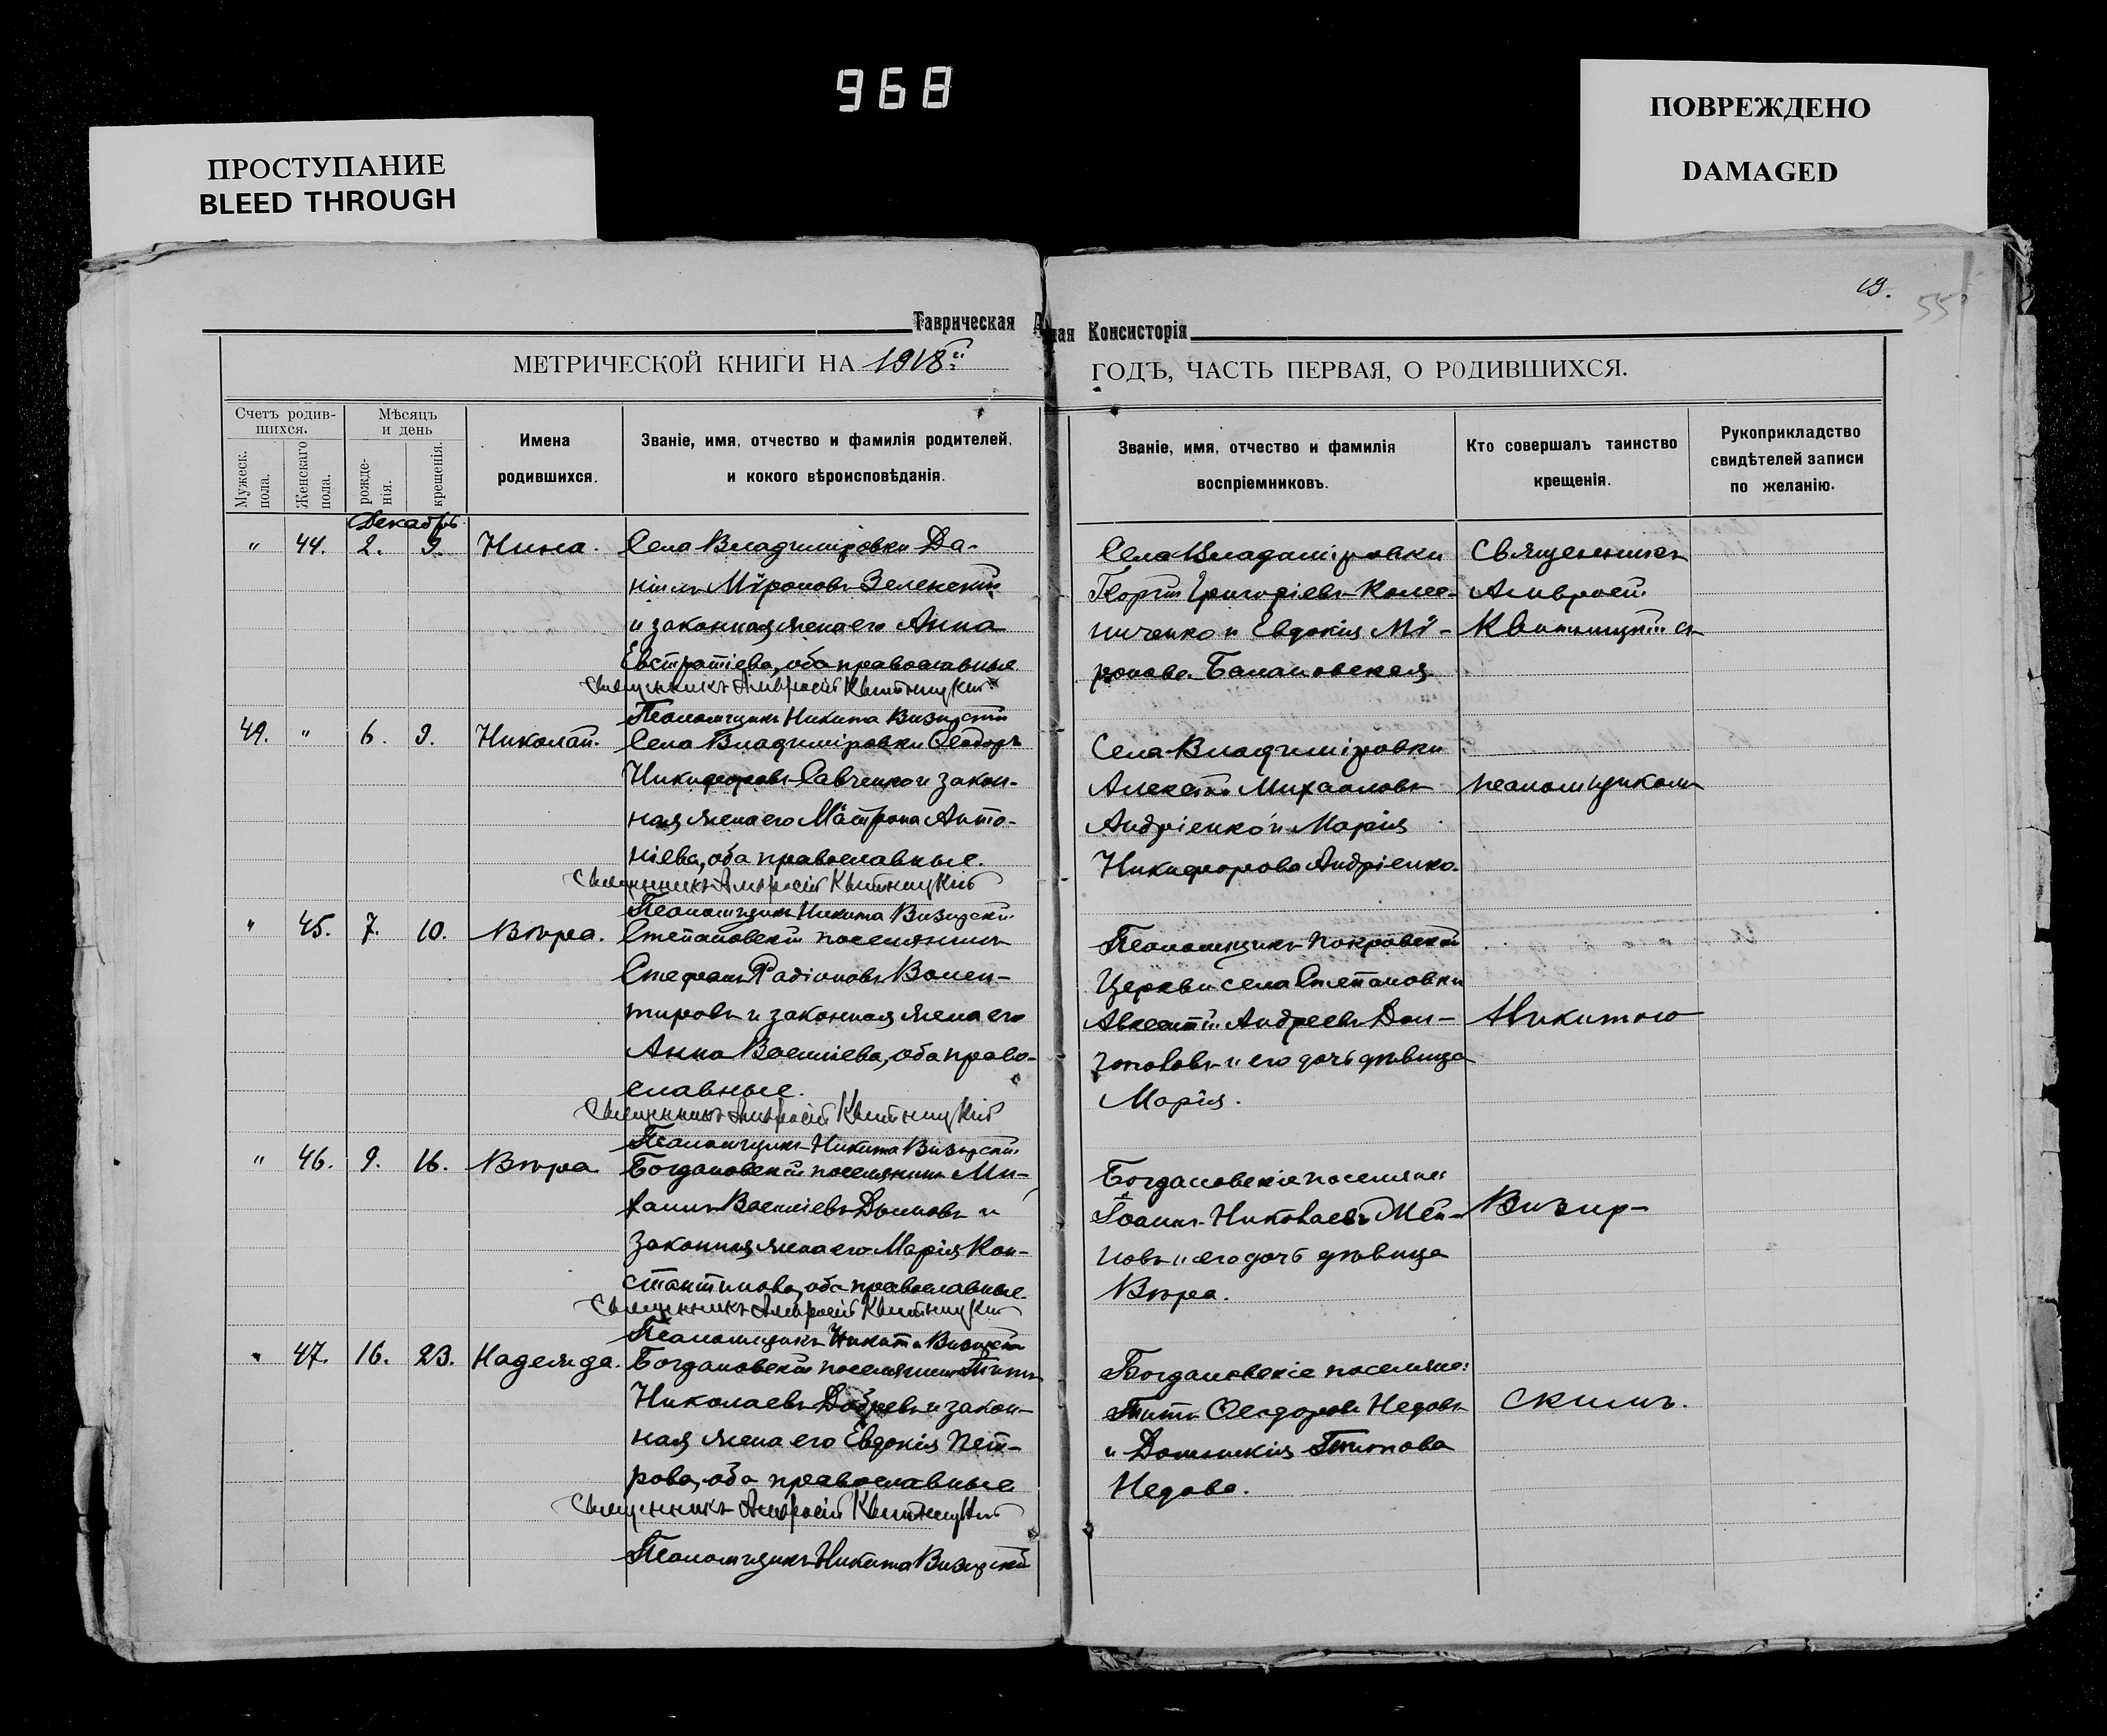 968
ПРОСТУПАНИЕ
BLEED THROUGH
ПОВРЕЖДЕНО
DAMAGED
19.
55
Таврическая
ная Консисторія
МЕТРИЧЕСКОЙ КНИГИ НА 1918й
ГОДЪ, ЧАСТЬ ПЕРВАЯ, О РОДИВШИХСЯ.
Счетъ родив-
шихся.
Мужеск.
пола.
Женскаго
пола.
Мѣсяцъ
и день
рожде-
нія.
крещенія.
Имена
родившихся.
Званіе, имя, отчество и фамилія родителей,
и кокого вѣроисповѣданія.
Званіе, имя, отчество и фамилія
воспріемниковъ.
Кто совершалъ таинство
крещенія.
Рукоприкладство
свидѣтелей записи
по желанію.
Декабрь
" 44. 2. 9. Нина. Села Владиміровки Да-
ніилъ Міроновъ Зеленскій
и законная жена его Анна
Евстратіева, оба православные
Священникъ Амвросій Квитницкій
Псаломщикъ Никита Визирскій
Села Владиміровки
Георгій Григоріевъ Колес-
ниченко и Евдокія Мі-
ронова
Священникъ
Амвросій
Квитницкій съ
49. " 6. 9. Николай. Села Владиміровки Ѳеодоръ
Никифоровъ Савченко и закон-
ная жена его Матрона Анто-
ніева, оба православные.
Священникъ Амвросій Квитницкій
Псаломщикъ Никита Визирскій
Села Владиміровки
Алексѣй Михайловъ
Андріенко и Марія
Никифорова Андріенко.
псаломщикомъ
" 45. 7. 10. Вѣра. Степановскій поселянинъ
Стефанъ Радіоновъ Волен-
тировъ и законная жена его
Анна Василіева, оба право-
славные.
Священникъ Амвросій Квитницкій
Псаломщикъ Никита Визирскій
Псаломщикъ Покровской
Церкви села Степановки
Авксентій Андреевъ
и его дочь дѣвица
Марія.
Никитою
" 46. 9. 16. Вѣра. Богдановскій поселянинъ Ми-
хаилъ Василіевъ и
законная жена его Марія Кон-
стантинова, оба православные.
Священникъ Амвросій Квитницкій
Псаломщикъ Никита Визирскій
Богдановскіе поселяне:
Іоаннъ Николаевъ
и его дочь дѣвица
Вѣра.
Визир-
" 47. 16. 23. Надежда. Богдановскій поселянинъ Титъ
Николаевъ Добревъ и закон-
ная жена его Евдокія Пет-
рова, оба православные
Священникъ Амвросій Квитницкій
Псаломщикъ Никита Визирскій
Богдановскіе поселяне:
Титъ Ѳеодоровъ Недовъ
и Домникія Титова
Недова.
скимъ.